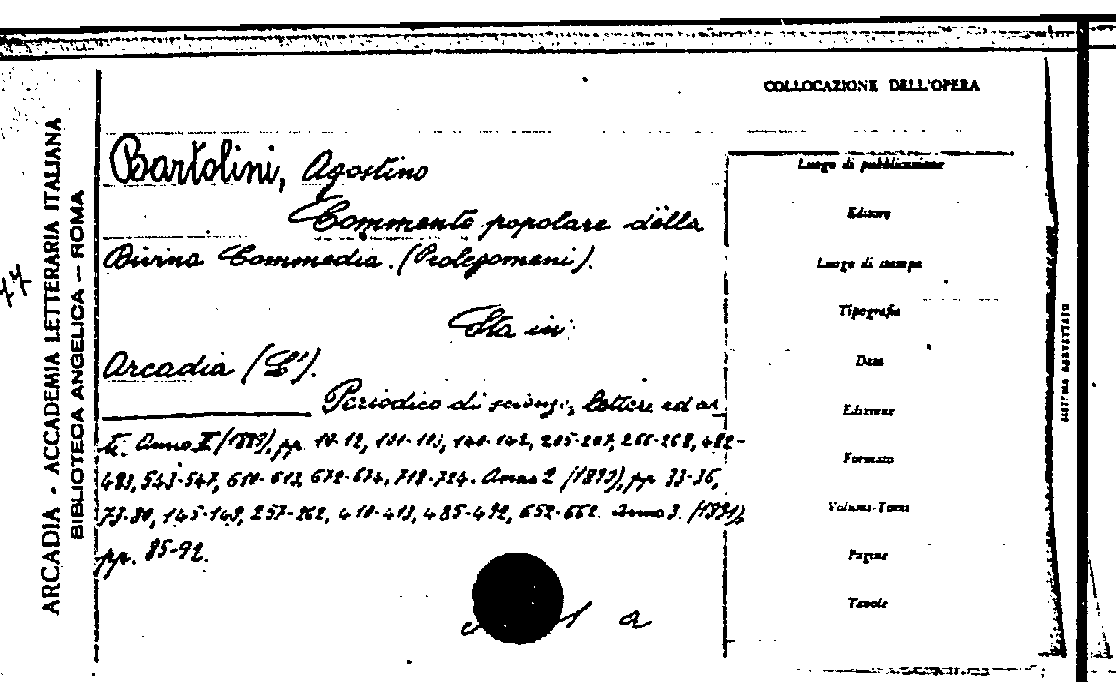 COLLOCAZIONE DELL'OPERA
ARCADIA - ACCADEMIA LETTERARIA ITALIANA
BIBLIOTECA ANGELICA – ROMA
Bartolini, Agostino
Commento popolare della
Divina Commedia. (Prolegomeni).
Sta in:
Arcadia (L').
Periodico di scienze, lettere ed ar
ti. Anno (1889), pp. 10-12, 101-103, 140-142, 205-207, 266-268, 482-
483, 543-547, 610-612, 672-674, 718-724. Anno 2 pp. 33-36,
73-80, 145-149, 257-262, 410-413, 485-492, 652-662. Anno 3. (1891),
pp. 85-92.
a
Luogo di pubblicazione
Editore
Luogo di stampa
Tipografia
Data
Edizione
Formato
Volume-Tomo
Pagine
Tavole